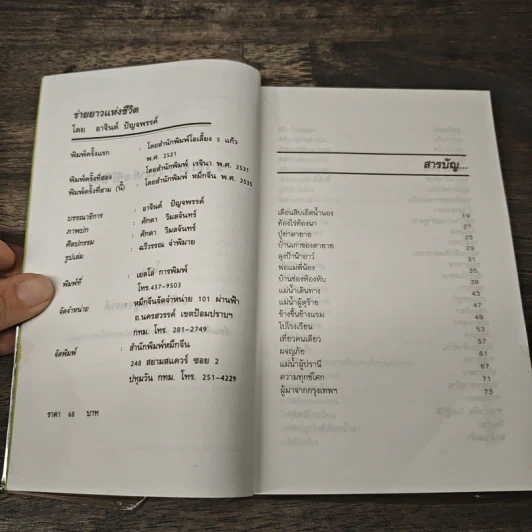 ข่ายยาวแห่งชีวิต
โดย อาจินต์ ปัญจพรรค์
พิมพ์ครั้งแรก : โดยสำนักพิมพ์โอเลี้ยง 5 แก้ว
พ.ศ. 2521
พิมพ์ครั้งที่สอง : โดยสำนักพิมพ์ เรจินา พ.ศ. 2531
พิมพ์ครั้งที่สาม (นี้) : โดยสำนักพิมพ์ หมึกจีน พ.ศ. 2535
บรรณาธิการ : อาจินต์ ปัญจพรรค์
ภาพปก : ศักดา วิมลจันทร์
ศิลปกรรม : ศักดา วิมลจันทร์
รูปเล่ม : ฉวีวรรณ จำพิมาย
พิมพ์ที่ : เยลโล่ การพิมพ์
โทร.437-9503
จัดจำหน่าย : หมึกจีนจัดจำหน่าย 101 ผ่านฟ้า
ถ.นครสวรรค์ เขตป้อมปราบฯ
กทม. โทร. 281-2749
จัดพิมพ์ : สำนักพิมพ์หมึกจีน
248 สยามสแควร์ ซอย 2
ปทุมวัน กทม. โทร. 251-4229
ราคา 68 บาท
สารบัญ...
เดือนสิบเอ็ดน้ำนอง 19
ท้องไร่ท้องนา 21
ปู่ย่าตายาย 25
บ้านเก่าของตายาย 29
ลุงป้าน้าอาว์ 31
พ่อแม่พี่น้อง 35
บ้านช่องห้องหับ 39
แม่น้ำเดินทาง 43
แม่น้ำผู้ดุร้าย 47
ข้างขึ้นข้างแรม 49
ไปโรงเรียน 53
เที่ยวคนเดียว 57
ผจญภัย 61
แม่น้ำผู้ปรานี 67
ความทุกข์โศก 71
ผู้มาจากกรุงเทพฯ 73